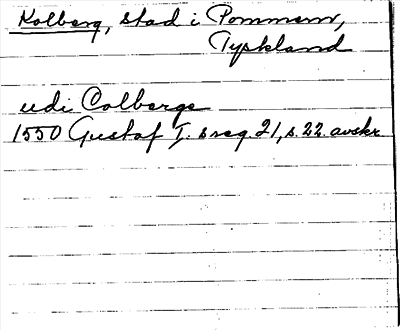 Kolberg, stad i Pommern,
Tyskland
udi Colberge
1550 Gustaf I. s reg. 21, s. 22. avskr.